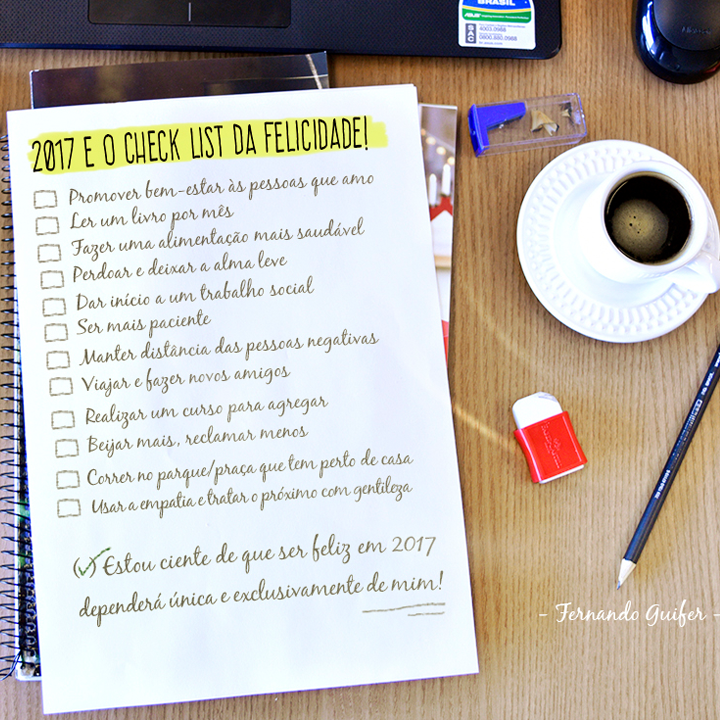 BRASIL
SAC
4003.0988
0800.880.0988
2017 E O CHECK LIST DA FELICIDADE!
Promover bem-estar às pessoas que amo
Ler um livro por mês
Fazer uma alimentação mais saudável
Perdoar e deixar a alma leve
Dar início a um trabalho social
Ser mais paciente
Manter distância das pessoas negativas
Viajar e fazer novos amigos
Realizar um curso para agregar
Beijar mais, reclamar menos
Correr no parque/praça que tem perto de casa
Usar a empatia e tratar o próximo com gentileza
(✓) Estou ciente de que ser feliz em 2017
dependerá única e exclusivamente de mim!
- Fernando Guifer -